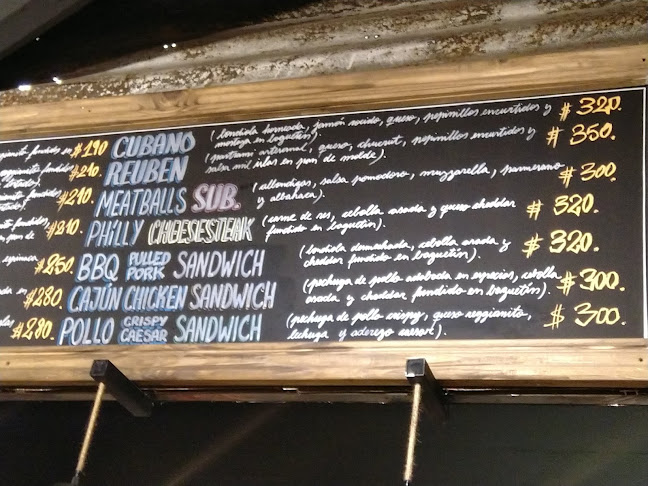 $190 CUBANO (bondiola horneada, jamón cocido, queso, pepinillos encurtidos y $320.
mostaza en baguetín).
$210. REUBEN (pastrami artesanal, queso, chucrut, pepinillos encurtidos y $350.
salsa mil islas en pan de molde).
$210. MEATBALLS SUB. (albondigas, salsa pomodoro, muzzarella, parmesano $300.
y albahaca).
$210. PHILLY CHEESESTEAK (carne de res, cebolla asada y queso cheddar $320.
fundido en baguetín).
$250. BBQ PULLED PORK SANDWICH (bondiola desmechada, cebolla asada y $320.
cheddar fundido en baguetín).
$280. CAJÚN CHICKEN SANDWICH (pechuga de pollo adobada en especias, cebolla $300.
asada y cheddar fundido en baguetín).
$280. POLLO CRISPY CAESAR SANDWICH (pechuga de pollo crispy, queso reggianito, $300.
lechuga y aderezo caesar).